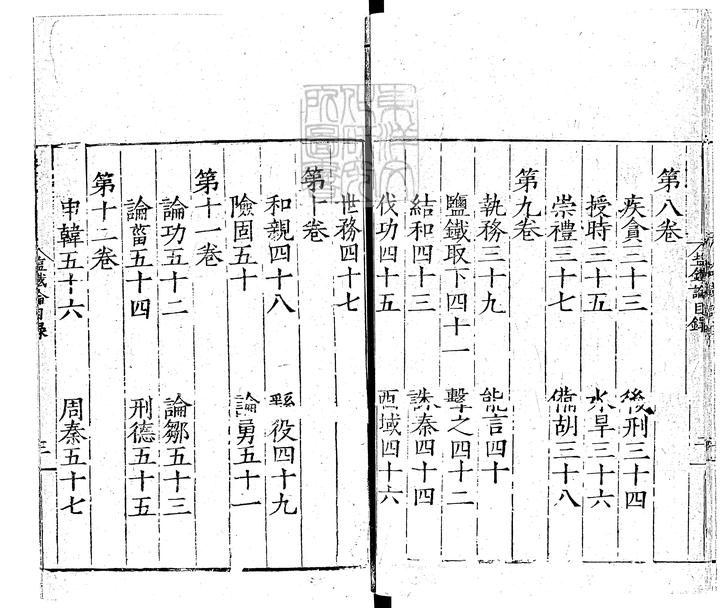 鹽鐵論目錄
第八卷
疾貪三十三 後刑三十四
授時三十五 水旱三十六
崇禮三十七 備胡三十八
第九卷
執務三十九 能言四十
鹽鐵取下四十一 擊之四十二
結和四十三 誅秦四十四
伐功四十五 西域四十六
第十卷
世務四十七
和親四十八 繇役四十九
險固五十 論勇五十一
第十一卷
論功五十二 論鄒五十三
論菑五十四 刑德五十五
第十二卷
申韓五十六 周秦五十七
盐鐵論目錄
三